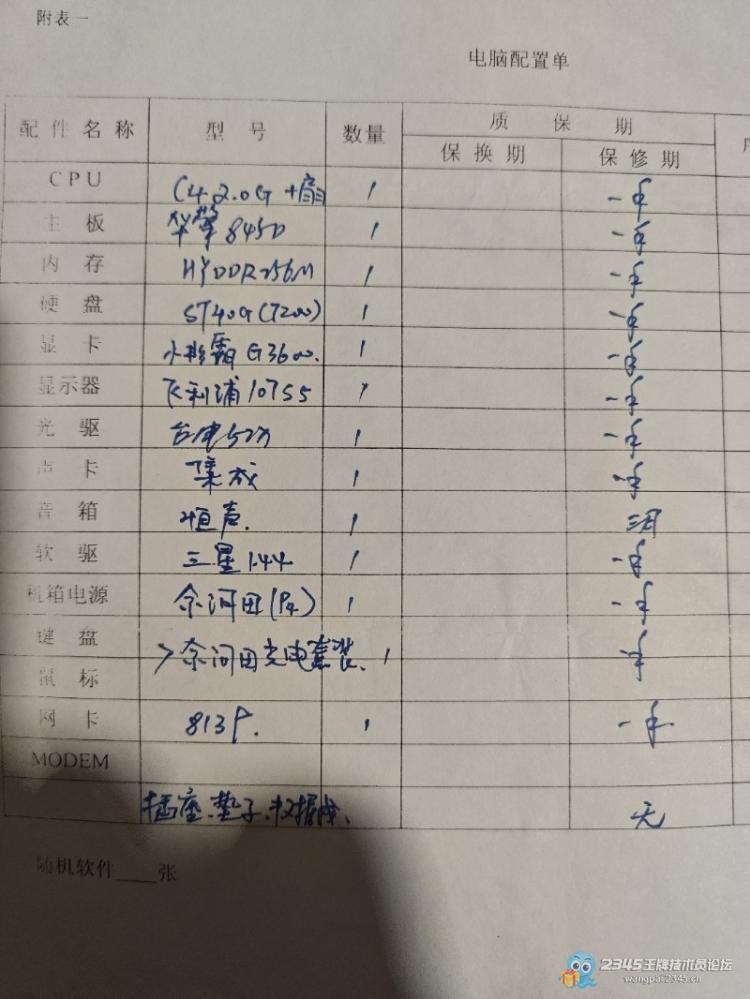 附表一
电脑配置单
配件名称 型号 数量 质保期
保换期 保修期
CPU C4 2.0G+扇 1 一年
主板 华擎845D 1 一年
内存 HYDDR256M 1 一年
硬盘 ST40G(7200) 1 一年
显卡 小影霸G3600. 1 一年
显示器 飞利浦107S5 1 一年
光驱 台电52X 1 一年
声卡 集成 1 一年
音箱 恒声. 1 三月
软驱 三星1.44 1 一年
机箱电源 奈河田(P4) 1 一年
键盘 >奈河田光电套装. 1 一年
鼠标
网卡 1 一年
MODEM
插座.垫子. 无
随机软件____张
2345王牌技术员论坛
wangpai.2345.cn